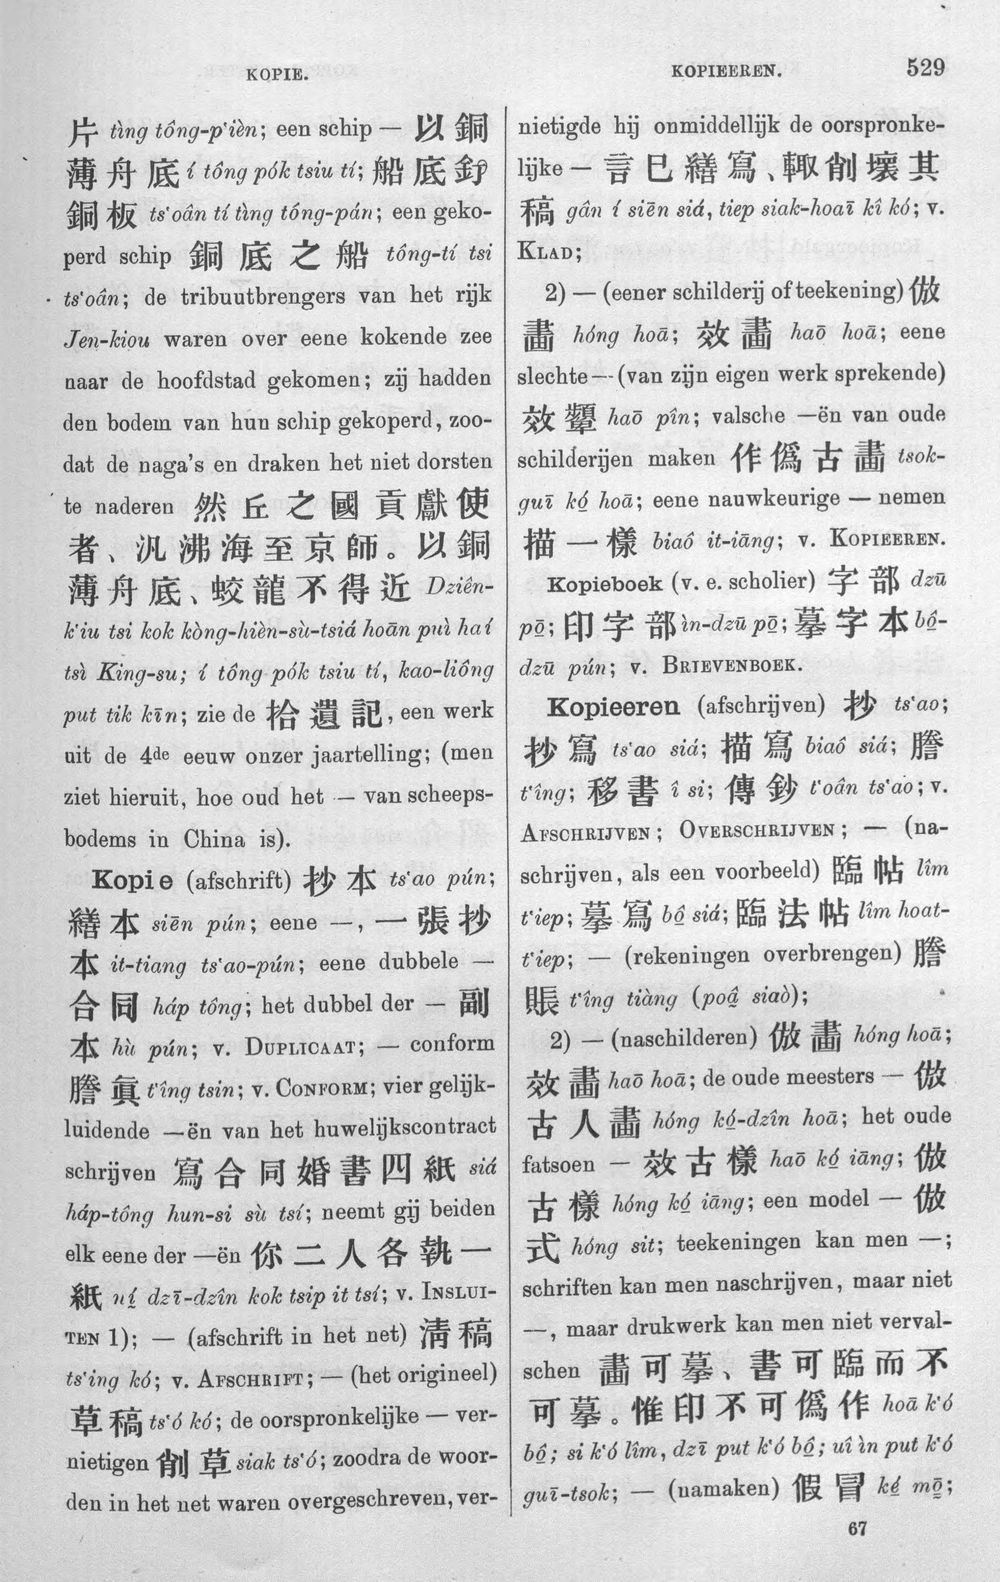 KOPIE.
KOPIEEREN.
529
片 tìng tông-p‘ièn; een schip — 以銅
薄舟底 í tông pók tsiu tí; 船底釘
銅板 ts‘oân tí tìng tóng-pán; een geko-
perd schip 銅底之船 tông-tí tsi
ts‘oân; de tribuutbrengers van het rijk
Jen-kiou waren over eene kokende zee
naar de hoofdstad gekomen; zij hadden
den bodem van hun schip gekoperd, zoo-
dat de naga's en draken het niet dorsten
te naderen 然丘之國貢獻使
者、汎沸海至京師。以銅
薄舟底、蛟龍不得近 Dziên-
k‘iu tsi kok kòng-hièn-sù-tsiá hoān puì haí
tsì King-su; í tông pók tsiu tí, kao-liông
put tik kīn; zie de 拾遺記, een werk
uit de 4de eeuw onzer jaartelling; (men
ziet hieruit, hoe oud het — van scheeps-
bodems in China is).
Kopie (afschrift) 抄本 ts‘ao pún;
繕本 siēn pún; eene —, 一張抄
本 it-tiang ts‘ao-pún; eene dubbele —
合同 háp tông; het dubbel der — 副
本 hù pún; v. DUPLICAAT; — conform
謄眞 t‘îng tsin; v. CONFORM; vier gelijk-
luidende —ën van het huwelijkscontract
schrijven 寫合同婚書四紙 siá
háp-tông hun-si sù tsí; neemt gij beiden
elk eene der —ën 你二人各執一
紙 ní dzī-dzîn kok tsip it tsí; v. INSLUI-
TEN 1); — (afschrift in het net) 淸稿
ts‘ing kó; v. AFSCHRIFT; — (het origineel)
草稿 ts‘ó kó; de oorspronkelijke — ver-
nietigen 削草 siak ts‘ó; zoodra de woor-
den in het net waren overgeschreven, ver-
nietigde hij onmiddellijk de oorspronke-
lijke — 言巳繕寫、輙削壞其
稿 gân í siēn siá, tiep siak-hoaī kî kó; v.
KLAD;
2) — (eener schilderij of teekening) 倣
畵 hóng hoā; 效畵 haō hoā; eene
slechte — (van zijn eigen werk sprekende)
效顰 haō pîn; valsche —ën van oude
schilderijen maken 作僞古畵 tsok-
guī kó hoā; eene nauwkeurige — nemen
描一樣 biaô it-iāng; v. KOPIEEREN.
Kopieboek (v. e. scholier) 字部 dzū
pō; 印字部 ìn-dzū pō; 摹字本 bô-
dzū pún; v. BRIEVENBOEK.
Kopieeren (afschrijven) 抄 ts‘ao;
抄寫 ts‘ao siá; 描寫 biaô siá; 謄
t‘îng; 移書 î si; 傳鈔 t‘oân ts‘ao; v.
AFSCHRIJVEN; OVERSCHRIJVEN; — (na-
schrijven, als een voorbeeld) 臨帖 lîm
t‘iep; 摹寫 bô siá; 臨法帖 lîm hoat-
t‘iep; — (rekeningen overbrengen) 謄
賬 t‘îng tiàng (poâ siaò);
2) — (naschilderen) 倣畵 hóng hoā;
效畵 haō hoā; de oude meesters — 倣
古人畵 hóng kó-dzîn hoā; het oude
fatsoen — 效古樣 haō kó iāng; 倣
古樣 hóng kó iāng; een model — 倣
式 hóng sit; teekeningen kan men —;
schriften kan men naschrijven, maar niet
—, maar drukwerk kan men niet verval-
schen 畵可摹、書可臨而不
可摹。惟印不可僞作 hoā k‘ó
bô; si k‘ó lîm, dzī put k‘ó bô; uî ìn put k‘ó
guī-tsok; — (namaken) 假冒 ké mō;
67